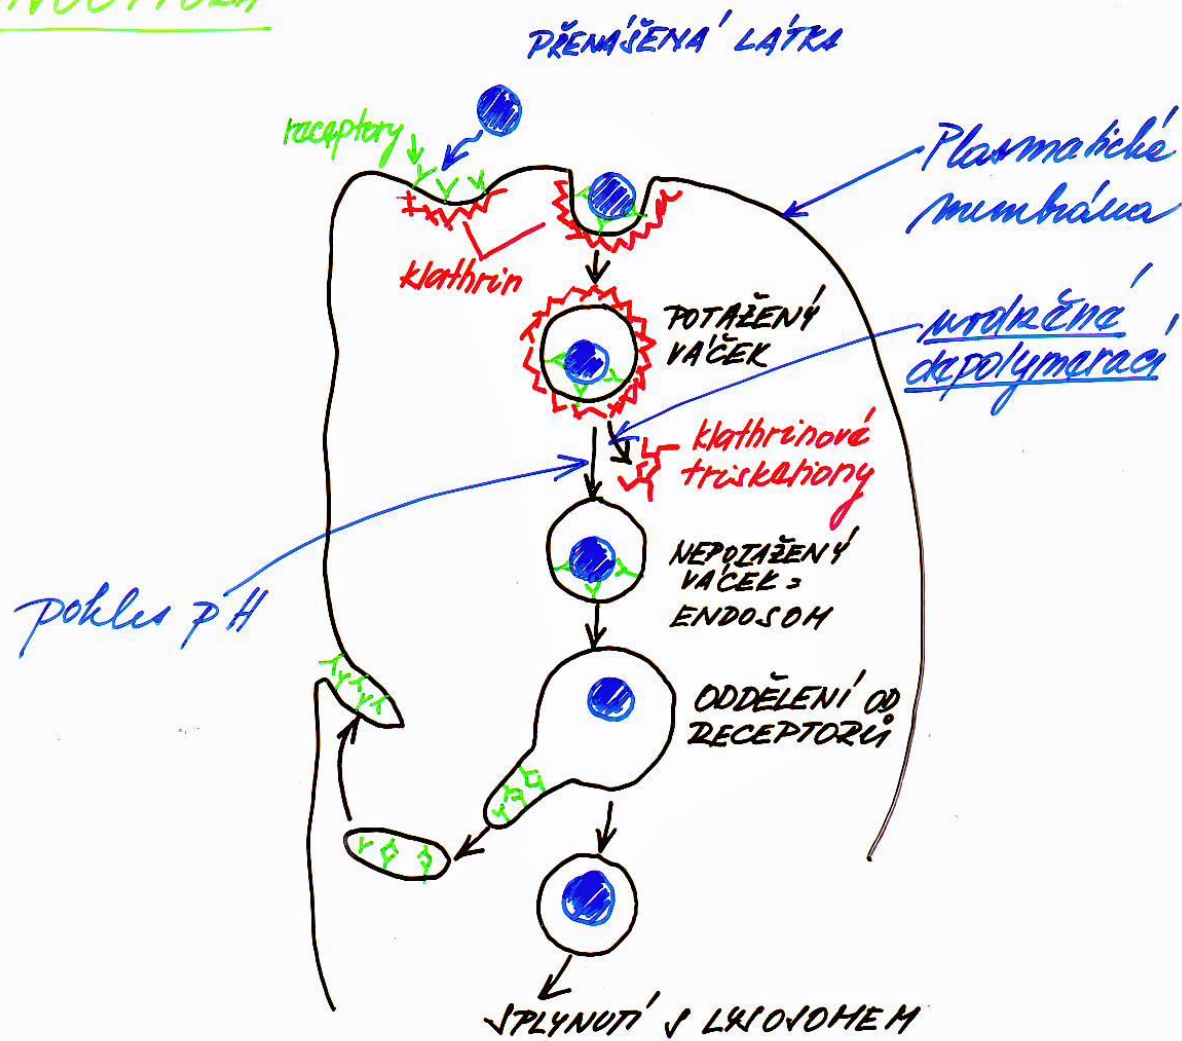 PŘENÁŠENÁ LÁTKA
receptory
Plasmatická
membrána
klathrin
POTAŽENÝ
VÁČEK
depolymerací
klathrinové
triskeliony
NEPOTAŽENÝ
VÁČEK =
ENDOSOM
pokles pH
ODDĚLENÍ OD
RECEPTORŮ
SPLYNUTÍ S LYSOSOMEM